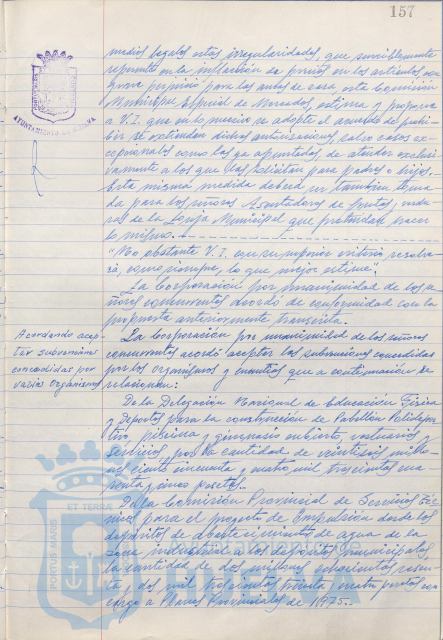 157
medios legales estas irregularidades, que sensiblemente
repercute en la inflación de precios en los artículos con
grave perjuicio para las amas de casa, esta Comisión
Municipal Especial de Mercados, estima y propone
a V.I. que en lo sucesivo se adopte el acuerdo de prohi-
bir se extiendan dichas autorizaciones, salvo casos ex-
cepcionales como los ya apuntados, de atender exclusi-
vamente a los que las solicitan para padres o hijos.
Esta misma medida deberá ser también toma-
da para los señores Asentadores de frutas, verdu-
ras de la Lonja Municipal que pretendan hacer
lo mismo.
"No obstante V.I. con su superior criterio resolve-
rá, como siempre, lo que mejor estime".
La Corporación por unanimidad de los se-
ñores concurrentes acordó de conformidad con la
propuesta anteriormente transcrita.
Acordando acep-
tar subvenciones
concedidas por
varios Organismos
La Corporación por unanimidad de los señores
concurrentes acordó aceptar las subvenciones concedidas
por los organismos y cuantías que a continuación se
relacionan:
De la Delegación Nacional de Educación Física
y Deportes para la construcción de Pabellón Polidepor-
tivo, piscina y gimnasio cubierto, vestuarios y
servicios, por la cantidad de veintiseis millo-
nes ciento cincuenta y cuatro mil trescientas cua-
renta y cinco pesetas.
De la Comisión Provincial de Servicios Téc-
nicos para el proyecto de Impulsión desde los
depósitos de abastecimientos de agua de la
zona industrial a los depósitos municipales
la cantidad de dos millones ochocientas sesen-
ta y dos mil trescientas treinta y cuatro pesetas con
cargo a Planes Provinciales de 1975.
AYUNTAMIENTO DE HUELVA
PORTUS MARIS ET TERRAE